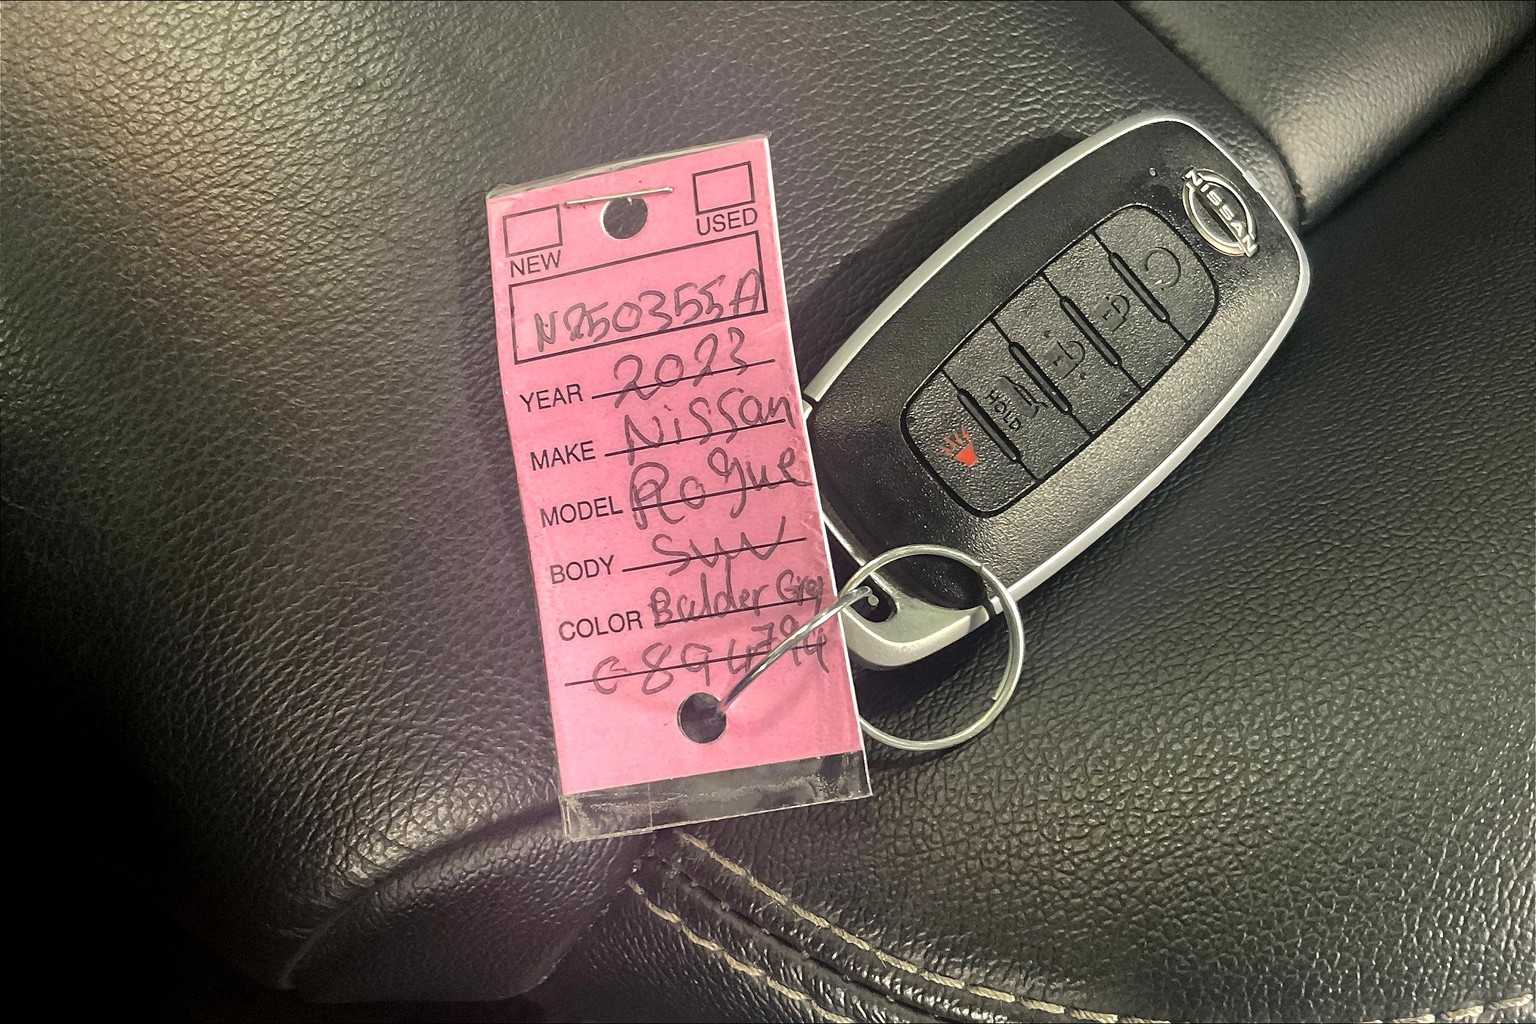 NEW
USED
N250355A
YEAR 2023
MAKE Nissan
MODEL Rogue
BODY SUV
COLOR Balder Grey
C894794
NISSAN
HOLD